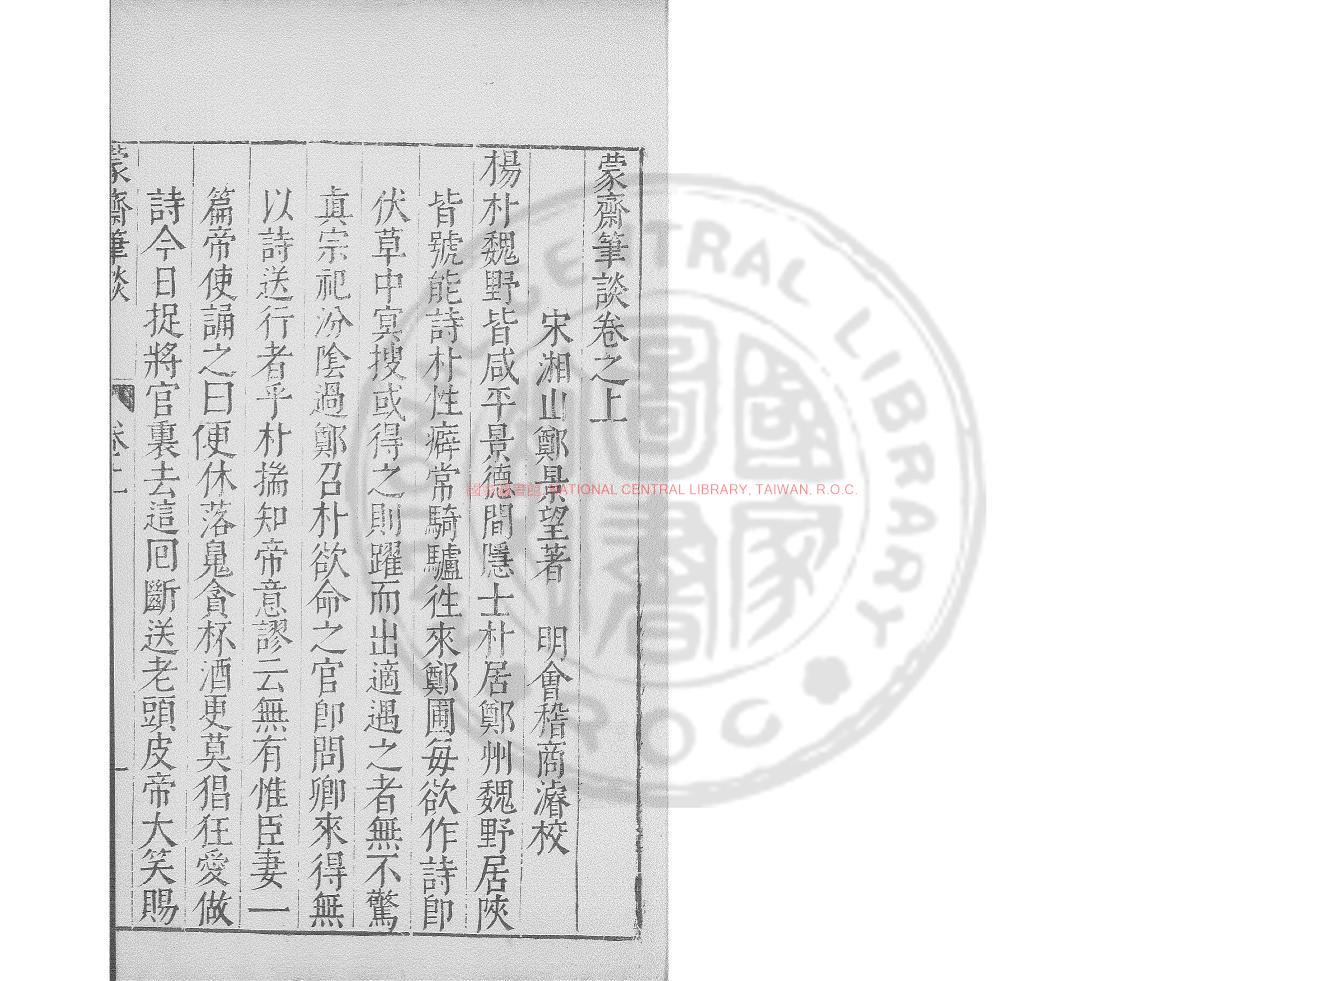 蒙齋筆談卷之上
宋湘山鄭景望著　明會稽商濬校
楊朴魏野皆咸平景德間隱士朴居鄭州魏野居陝
皆號能詩朴性癖常騎驢徃來鄭圃每欲作詩卽
伏草中冥搜或得之則躍而出適遇之者無不驚
真宗祀汾陰過鄭召朴欲命之官卽問卿來得無
以詩送行者乎朴揣知帝意謬云無有惟臣妻一
篇帝使誦之曰便休落魄貪杯酒更莫猖狂愛做
詩今日捉將官裏去這囘斷送老頭皮帝大笑賜
蒙齋筆談
卷上
一
NATIONAL CENTRAL LIBRARY, TAIWAN, R.O.C.